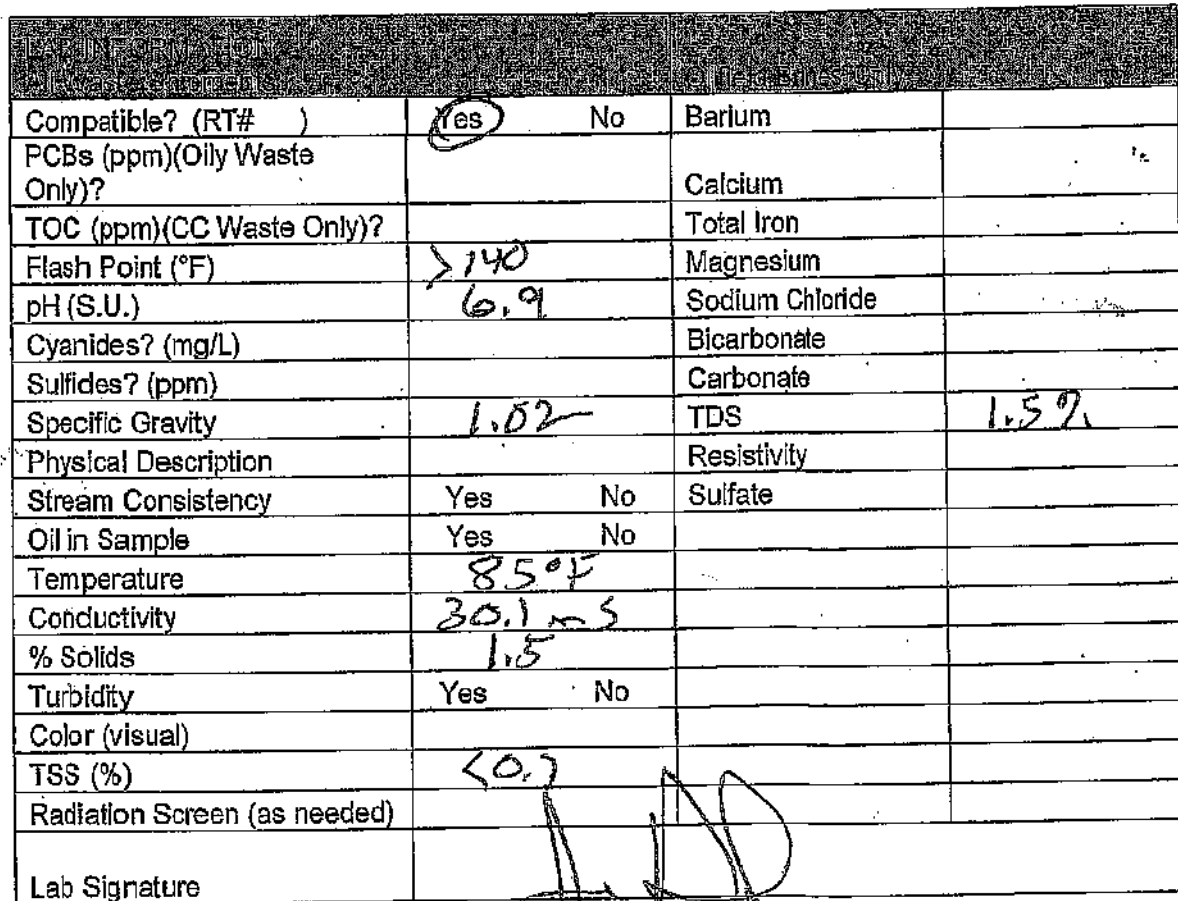 LAB INFORMATION
Compatible? (RT# ) Yes No Barium
PCBs (ppm)(Oily Waste
Only)? Calcium
TOC (ppm)(CC Waste Only)? Total Iron
Flash Point (°F) >140 Magnesium
pH (S.U.) 6.9 Sodium Chloride
Cyanides? (mg/L) Bicarbonate
Sulfides? (ppm) Carbonate
Specific Gravity 1.02 TDS 1.5%
Physical Description Resistivity
Stream Consistency Yes No Sulfate
Oil in Sample Yes No
Temperature 85°F
Conductivity 30.1 mS
% Solids 1.5
Turbidity Yes No
Color (visual)
TSS (%)
Radiation Screen (as needed)
Lab Signature